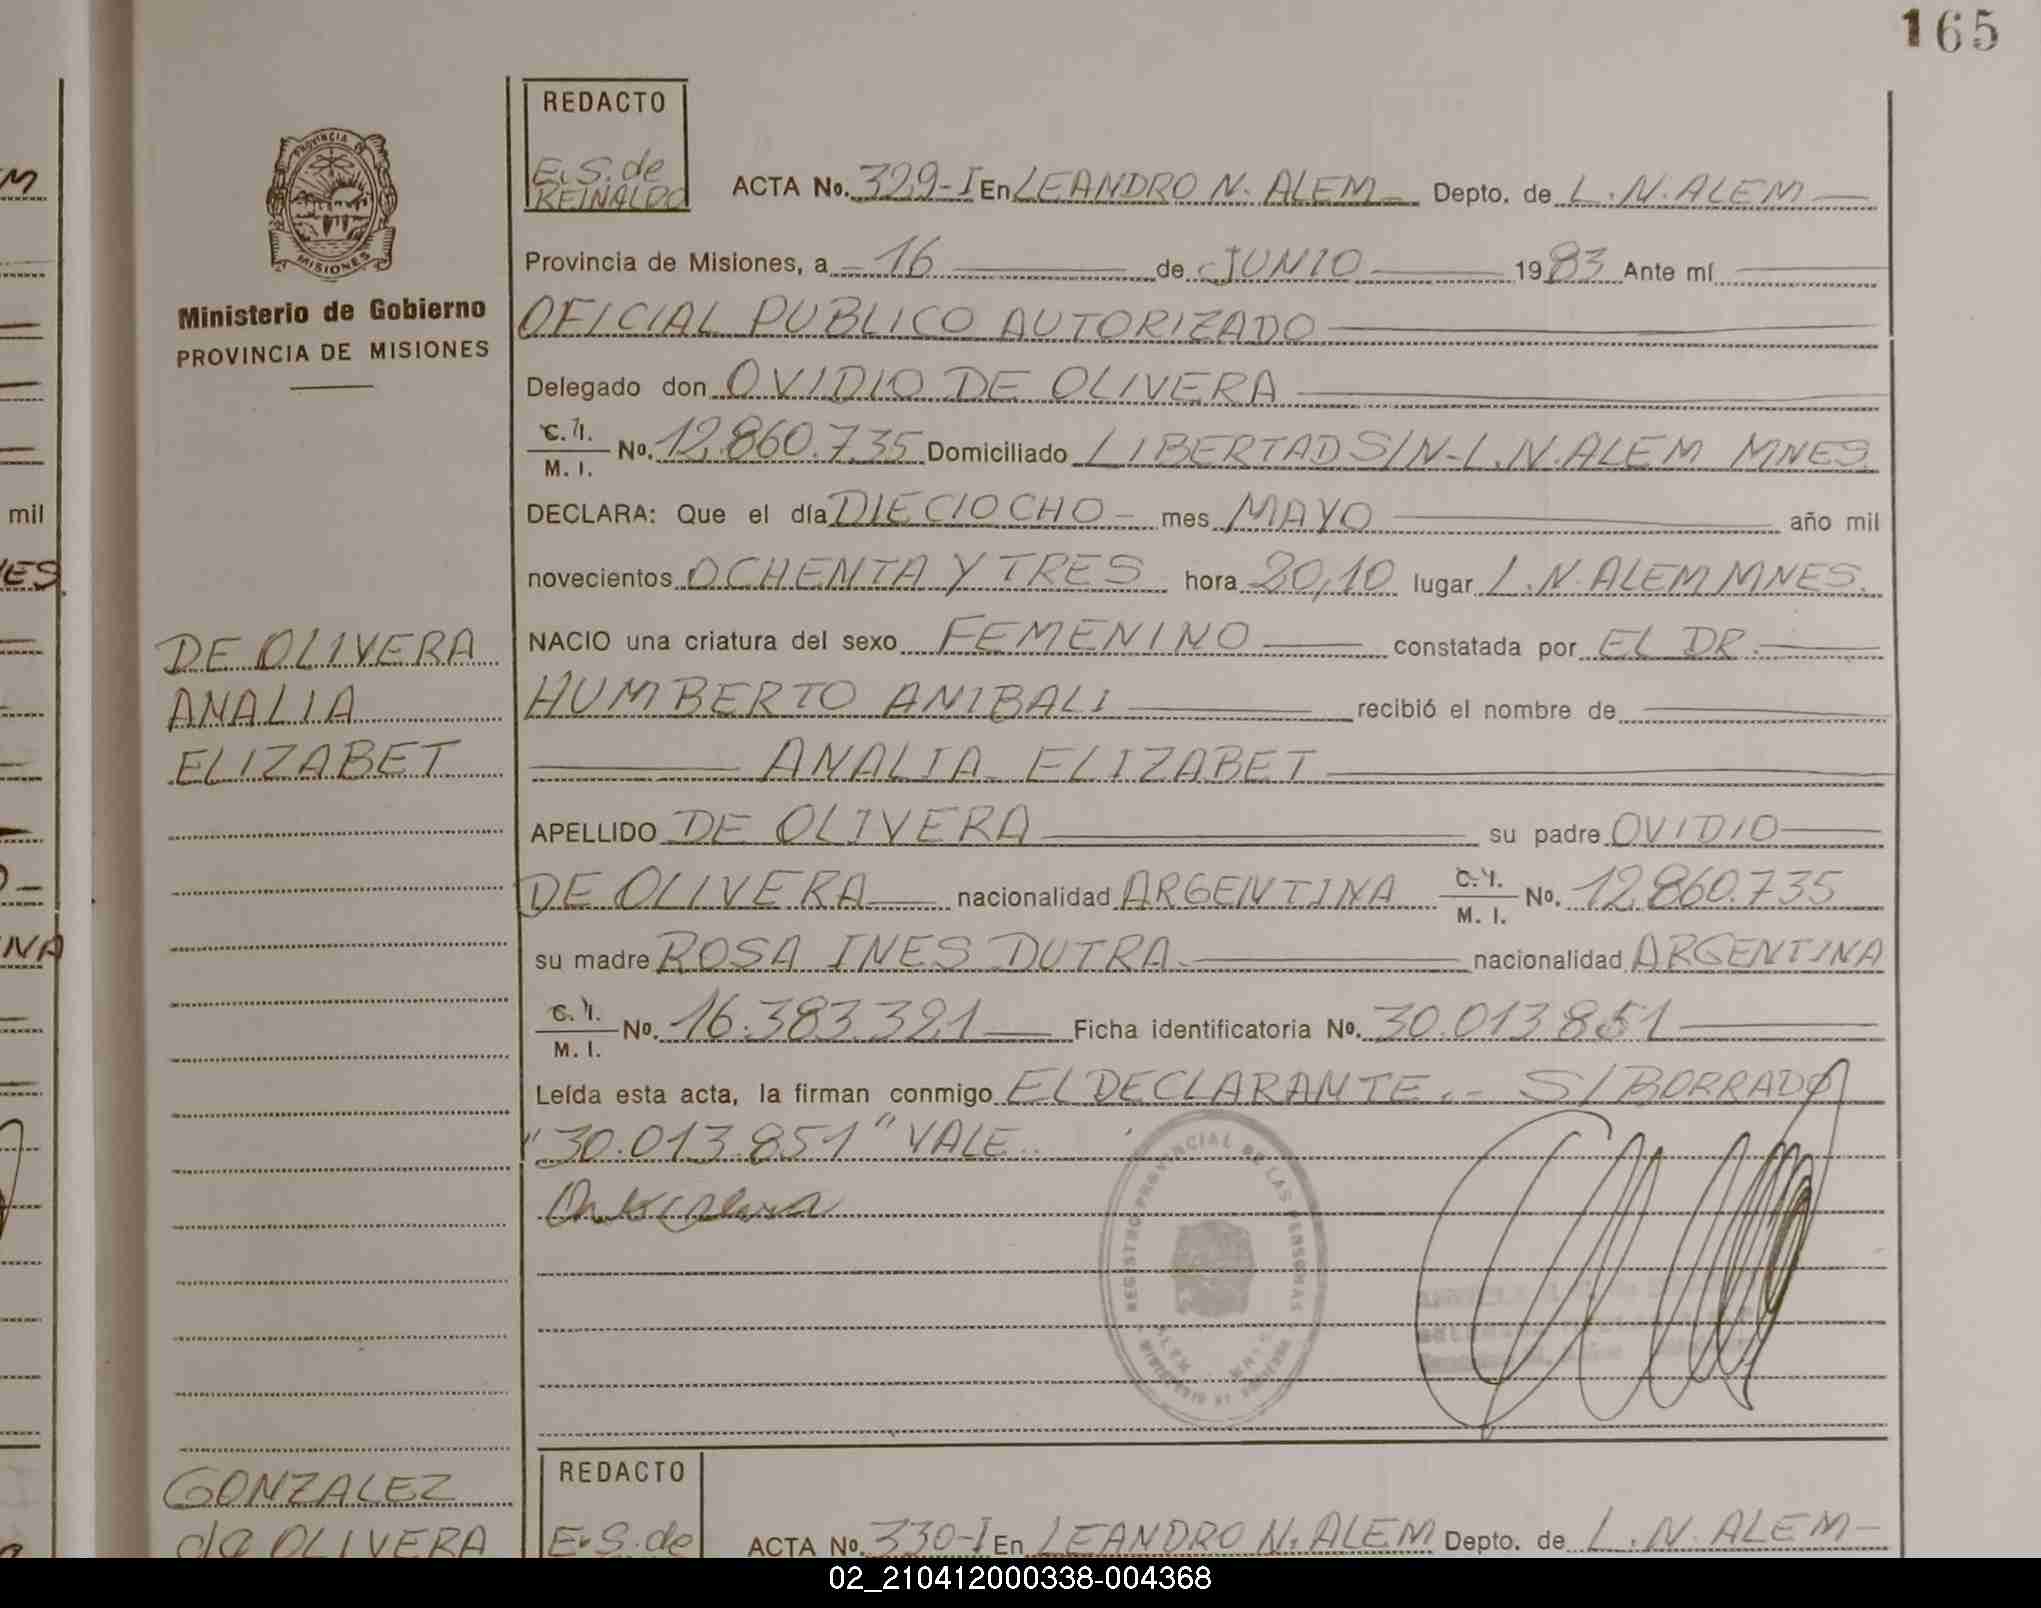 165
REDACTO
E. S. de
REINALDO
ACTA No. 329-I En LEANDRO N. ALEM Depto. de L. N. ALEM
PROVINCIA
MISIONES
Ministerio de Gobierno
PROVINCIA DE MISIONES
Provincia de Misiones, a 16 de JUNIO 1983 Ante mí
OFICIAL PUBLICO AUTORIZADO
Delegado don OVIDIO DE OLIVERA
C. I.
M. I. No. 12.860.735 Domiciliado LIBERTAD S/N-L.N.ALEM MNES.
DECLARA: Que el día DIECIOCHO mes MAYO año mil
novecientos OCHENTA Y TRES hora 20,10 lugar L.N.ALEM MNES.
DE OLIVERA
ANALIA
ELIZABET
NACIO una criatura del sexo FEMENINO constatada por EL DR.
HUMBERTO ANIBALI recibió el nombre de
ANALIA ELIZABET
APELLIDO DE OLIVERA su padre OVIDIO
DE OLIVERA nacionalidad ARGENTINA C. I.
M. I. No. 12.860.735
su madre ROSA INES DUTRA nacionalidad ARGENTINA
C. I.
M. I. No. 16.383.321 Ficha identificatoria No. 30.013.851
Leída esta acta, la firman conmigo EL DECLARANTE.- S/BORRADO
"30.013.851" VALE.
REGISTRO PROVINCIAL DE LAS PERSONAS
GONZALEZ
da OLIVERA
REDACTO
E. S. de
ACTA No. 330-I En LEANDRO N. ALEM Depto. de L. N. ALEM-
mil
02_210412000338-004368